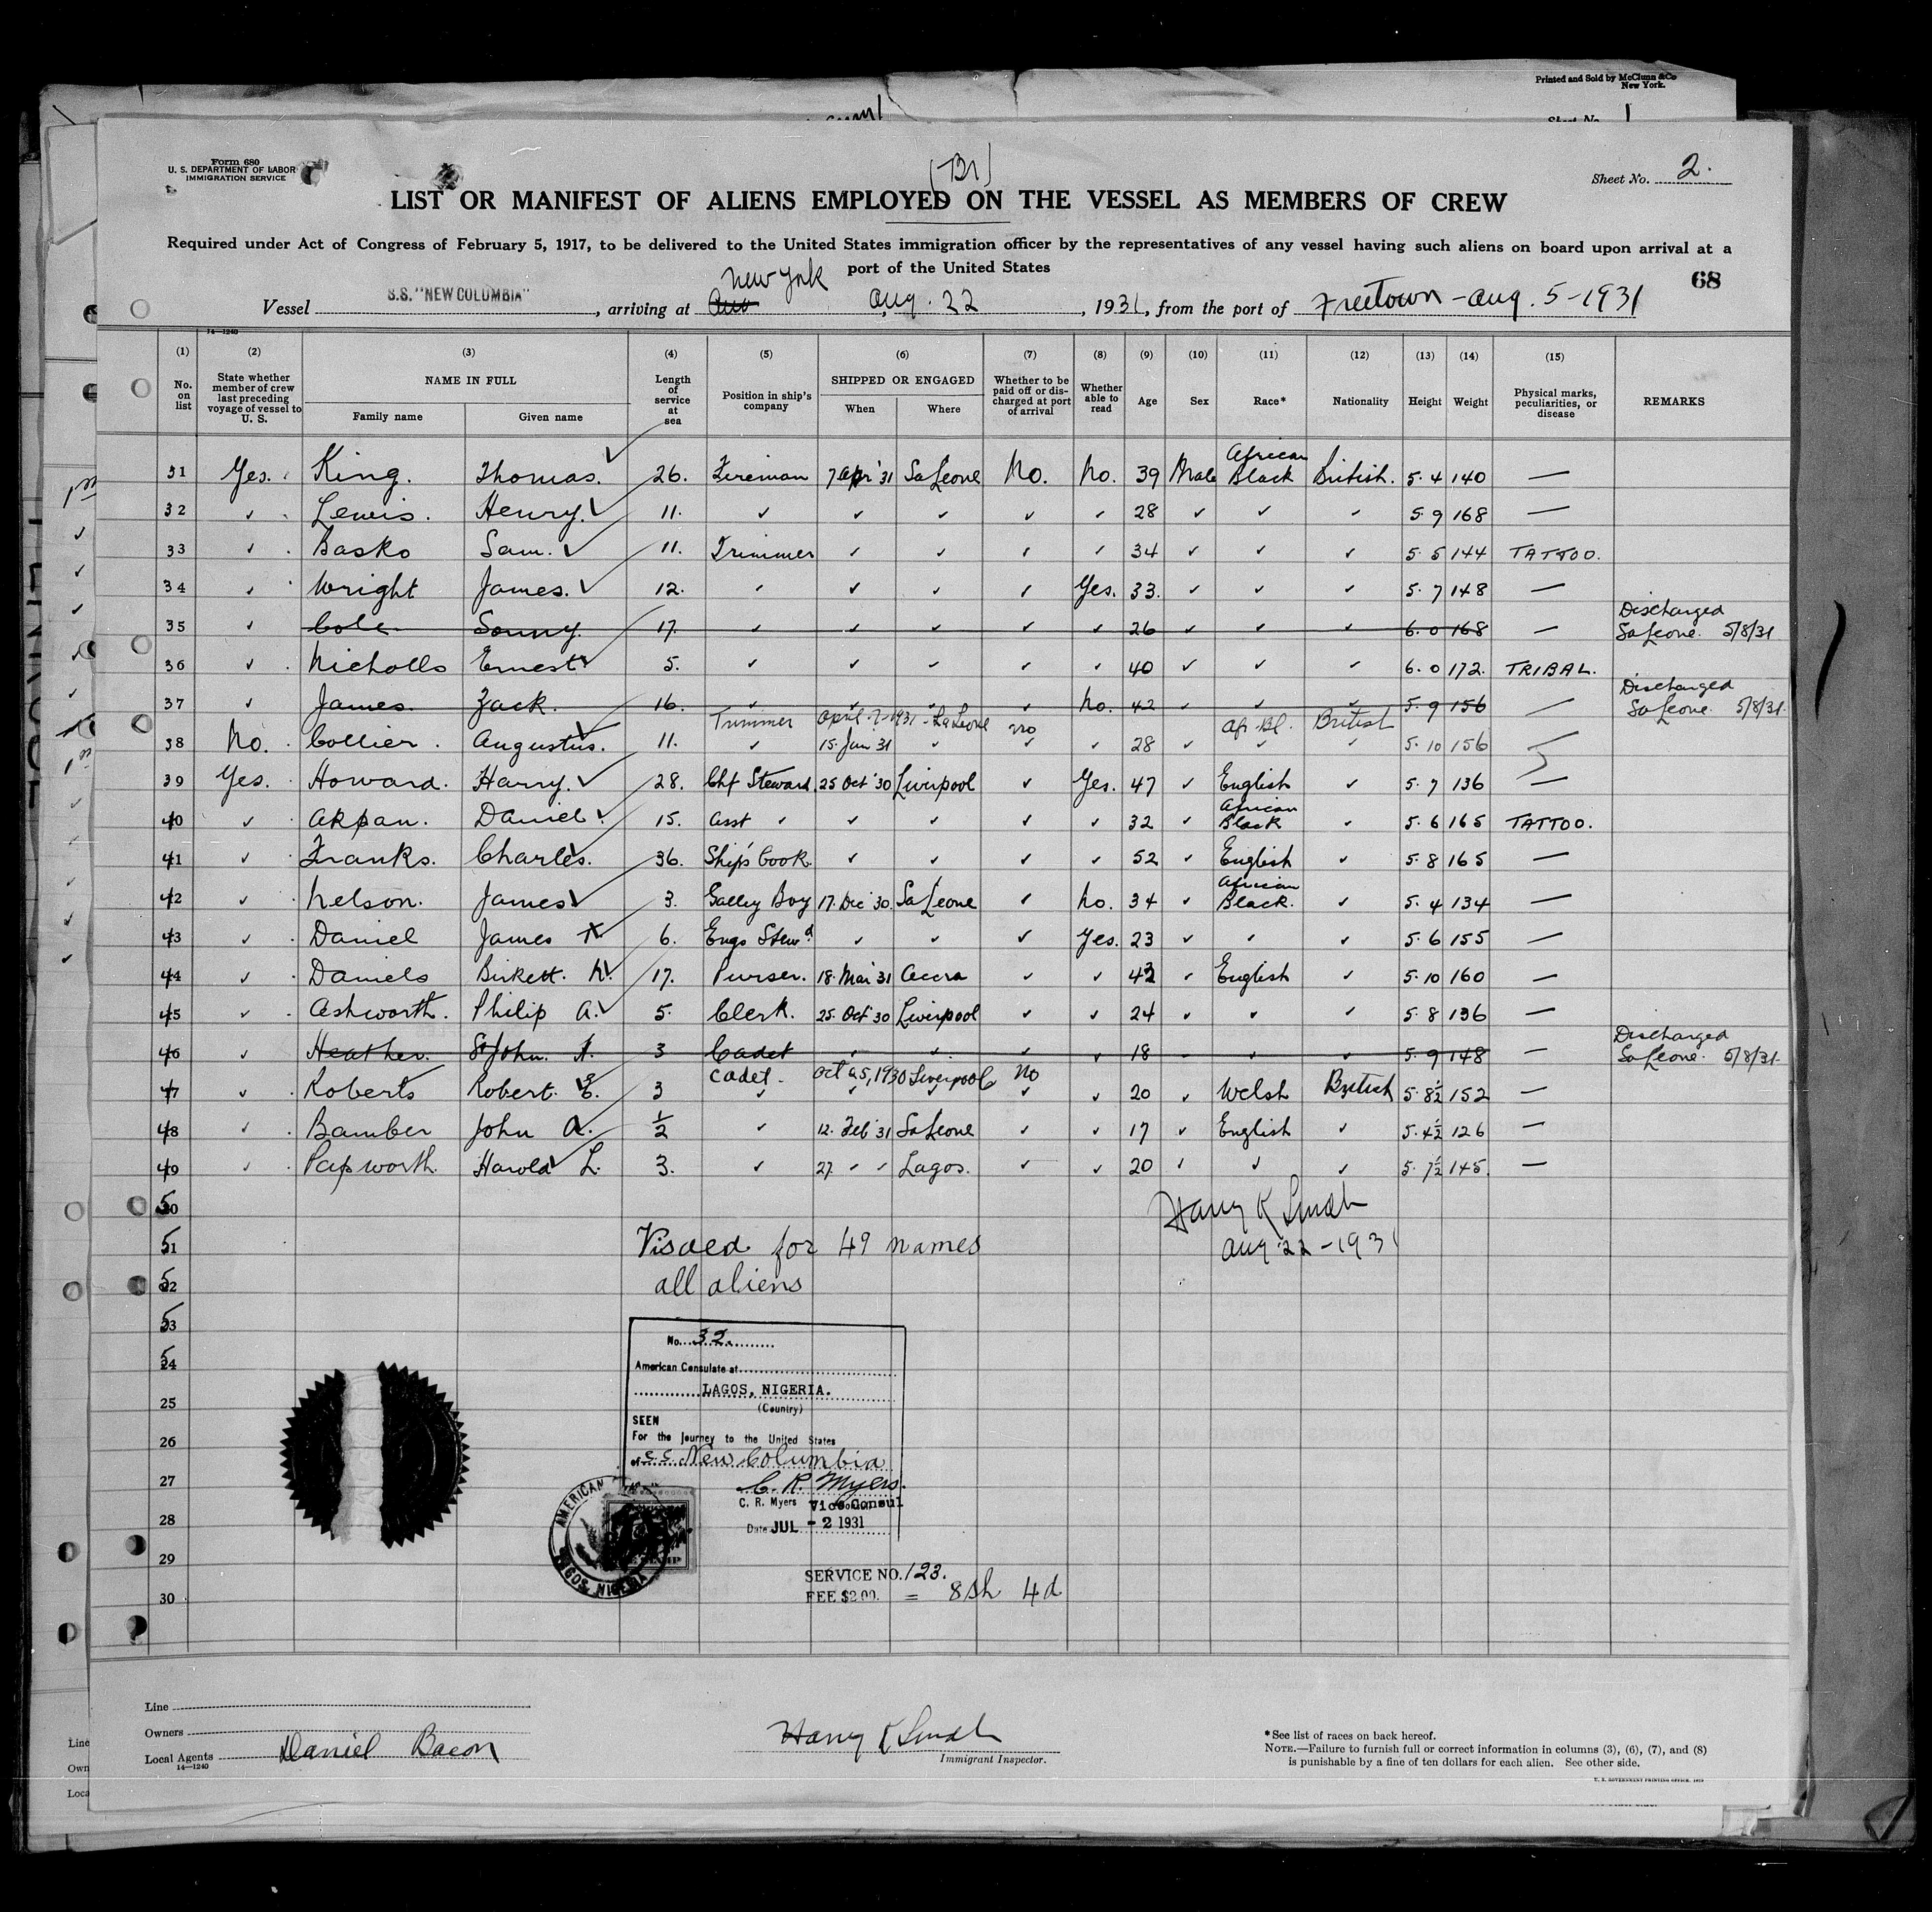 Printed and Sold by McClunn & Co
New York.
Sheet No. 1
Form 680
U. S. DEPARTMENT OF LABOR
IMMIGRATION SERVICE
(Br)
Sheet No. 2.
LIST OR MANIFEST OF ALIENS EMPLOYED ON THE VESSEL AS MEMBERS OF CREW
Required under Act of Congress of February 5, 1917, to be delivered to the United States immigration officer by the representatives of any vessel having such aliens on board upon arrival at a
port of the United States
68
Vessel S.S. "NEW COLUMBIA", arriving at New York Aug. 22, 1931, from the port of Freetown - Aug. 5 - 1931
14—1240
(1) (2) (3) (4) (5) (6) (7) (8) (9) (10) (11) (12) (13) (14) (15)
No. on list
State whether member of crew last preceding voyage of vessel to U. S.
NAME IN FULL
Family name Given name
Length of service at sea
Position in ship's company
SHIPPED OR ENGAGED
When Where
Whether to be paid off or discharged at port of arrival
Whether able to read
Age Sex Race* Nationality Height Weight
Physical marks, peculiarities, or disease
REMARKS
31 Yes. King. Thomas. ✓ 26. Fireman 7 Apr '31 Sa Leone No. No. 39 Male African Black British. 5. 4 140 —
32 ✓ Lewis. Henry. ✓ 11. ✓ ✓ ✓ ✓ ✓ 28 ✓ ✓ ✓ 5 9 168 —
33 ✓ Basko Sam. ✓ 11. Trimmer ✓ ✓ ✓ ✓ 34 ✓ ✓ ✓ 5. 5 144 TATTOO.
34 ✓ Wright James. ✓ 12. ✓ ✓ ✓ ✓ Yes. 33. ✓ ✓ ✓ 5. 7 148 —
35 ✓ Cole Sonny. 17. ✓ ✓ ✓ ✓ ✓ 26 ✓ ✓ ✓ 6. 0 168 — Discharged Sa Leone. 5/8/31
36 ✓ Nicholls Ernest ✓ 5. ✓ ✓ ✓ ✓ ✓ 40 ✓ ✓ ✓ 6. 0 172. TRIBAL.
37 ✓ James. Jack. 16. ✓ ✓ ✓ ✓ No. 42 ✓ ✓ ✓ 5. 9 156 — Discharged Sa Leone. 5/8/31.
Trimmer April 7-1931 - Sa Leone no Af. Bl. British
38 No. Collier. Augustus. ✓ 11. ✓ 15. Jun 31 ✓ ✓ ✓ 28 ✓ ✓ ✓ 5. 10 156
39 Yes. Howard. Harry. ✓ 28. Chf Steward. 25 Oct '30 Liverpool ✓ Yes. 47 ✓ English ✓ 5. 7 136 —
40 ✓ Akpan. Daniel ✓ 15. Asst ✓ ✓ ✓ ✓ ✓ 32 ✓ African Black ✓ 5. 6 165 TATTOO.
41 ✓ Franks. Charles. ✓ 36. Ship's Cook. ✓ ✓ ✓ ✓ 52 ✓ English ✓ 5. 8 165 —
42 ✓ Nelson. James ✓ 3. Galley Boy 17. Dec '30. Sa Leone ✓ No. 34 ✓ African Black. ✓ 5. 4 134 —
43 ✓ Daniel James X 6. Engs Stewd ✓ ✓ ✓ Yes. 23 ✓ ✓ ✓ 5. 6 155 —
44 ✓ Daniels Birkett. 17. Purser. 18. Mar '31 Accra ✓ ✓ 43 ✓ English ✓ 5. 10 160 —
45 ✓ Ashworth. Philip A. ✓ 5. Clerk. 25. Oct '30 Liverpool ✓ ✓ 24 ✓ ✓ ✓ 5. 8 136 —
46 ✓ Heather. St John. 3 Cadet ✓ ✓ ✓ ✓ 18 ✓ ✓ 5. 9 148 — Discharged Sa Leone. 5/8/31.
Cadet. Oct 25, 1930 Liverpool No
47 ✓ Roberts Robert. E. 3 ✓ ✓ ✓ ✓ ✓ 20 ✓ Welsh British 5. 8½ 152 —
48 ✓ Bamber John A. ½ ✓ 12. Feb '31 Sa Leone ✓ ✓ 17 ✓ English ✓ 5. 4½ 126 —
49 ✓ Papworth Harold L. 3. ✓ 27. ✓ ✓ Lagos. ✓ ✓ 20 ✓ ✓ ✓ 5. 7½ 145. —
50
Harry K Smith
51 Visaed for 49 names
Aug 22 - 1931
52 all aliens
53
No. 32.
54
American Consulate at
LAGOS, NIGERIA.
(Country)
25
SEEN
26
For the Journey to the United States
of S.S. New Columbia
27
C. R. Myers.
C. R. Myers Vice Consul
28
Date JUL - 2 1931
AMERICAN
LAGOS, NIGERIA
29
SERVICE NO. 123.
30
FEE $2.00. = 8sh 4d
Line
Owners
Local Agents Daniel Bacon
14—1240
Harry K Smith
Immigrant Inspector.
*See list of races on back hereof.
NOTE.—Failure to furnish full or correct information in columns (3), (6), (7), and (8)
is punishable by a fine of ten dollars for each alien. See other side.
U. S. GOVERNMENT PRINTING OFFICE. 1929